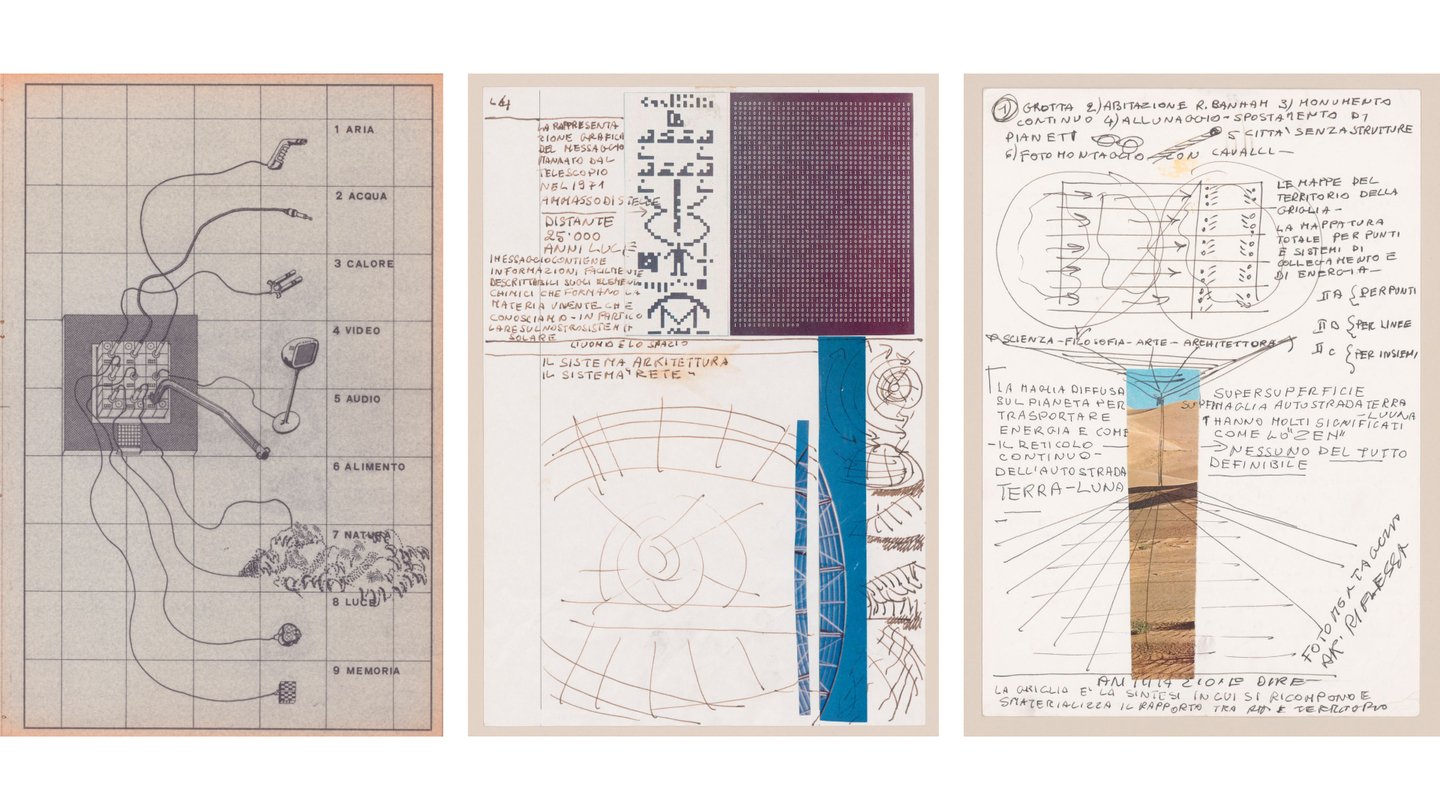 1 ARIA
2 ACQUA
3 CALORE
4 VIDEO
5 AUDIO
6 ALIMENTO
7 NATURA
8 LUCE
9 MEMORIA
L4
LA RAPPRESENTA
ZIONE GRAFICA
DEL MESSAGGIO
MANDATO DAL
TELESCOPIO
NEL 1971
AMMASSO DI STELLE
DISTANTE
25'000
ANNI LUCE
IL MESSAGGIO CONTIENE
INFORMAZIONI FACILMENTE
DESCRITTABILI SUGLI ELEMENTI
CHIMICI CHE FORMANO LA
MATERIA VIVENTE CHE
CONOSCIAMO - IN PARTICO
LARE SUL NOSTRO SISTEMA
SOLARE
L'UOMO E LO SPAZIO
IL SISTEMA ARKITETTURA
IL SISTEMA "RETE"
1 GROTTA 2) ABITAZIONE R. BANHAM 3) MONUMENTO
CONTINUO 4) ALLUNAGGIO - SPOSTAMENTO DI
PIANETI 5 CITTA' SENZA STRUTTURE
6) FOTOMONTAGGIO CON CAVALLI -
LE MAPPE DEL
TERRITORIO DELLA
GRIGLIA -
LA MAPPATURA
TOTALE PER PUNTI
E SISTEMI DI
COLLEGAMENTO E
DI ENERGIA -
II A { PER PUNTI
II B { PER LINEE
II C { PER INSIEMI
SCIENZA - FILOSOFIA - ARTE - ARCHITETTURA
LA MAGLIA DIFFUSA
SUL PIANETA PER
TRASPORTARE
ENERGIA E COME
- IL RETICOLO
CONTINUO -
DELL'AUTOSTRADA
TERRA - LUNA
SUPERSUPERFICIE
SUPERMAGLIA AUTOSTRADA TERRA
- LUUNA
HANNO MOLTI SIGNIFICATI
COME LO "ZEN"
NESSUNO DEL TUTTO
DEFINIBILE
FOTOMONTAGGIO
AR. RIFLESSA
LA GRIGLIA E' LA SINTESI IN CUI SI RICOMPONE E
SMATERIALIZZA IL RAPPORTO TRA E TERRITORIO